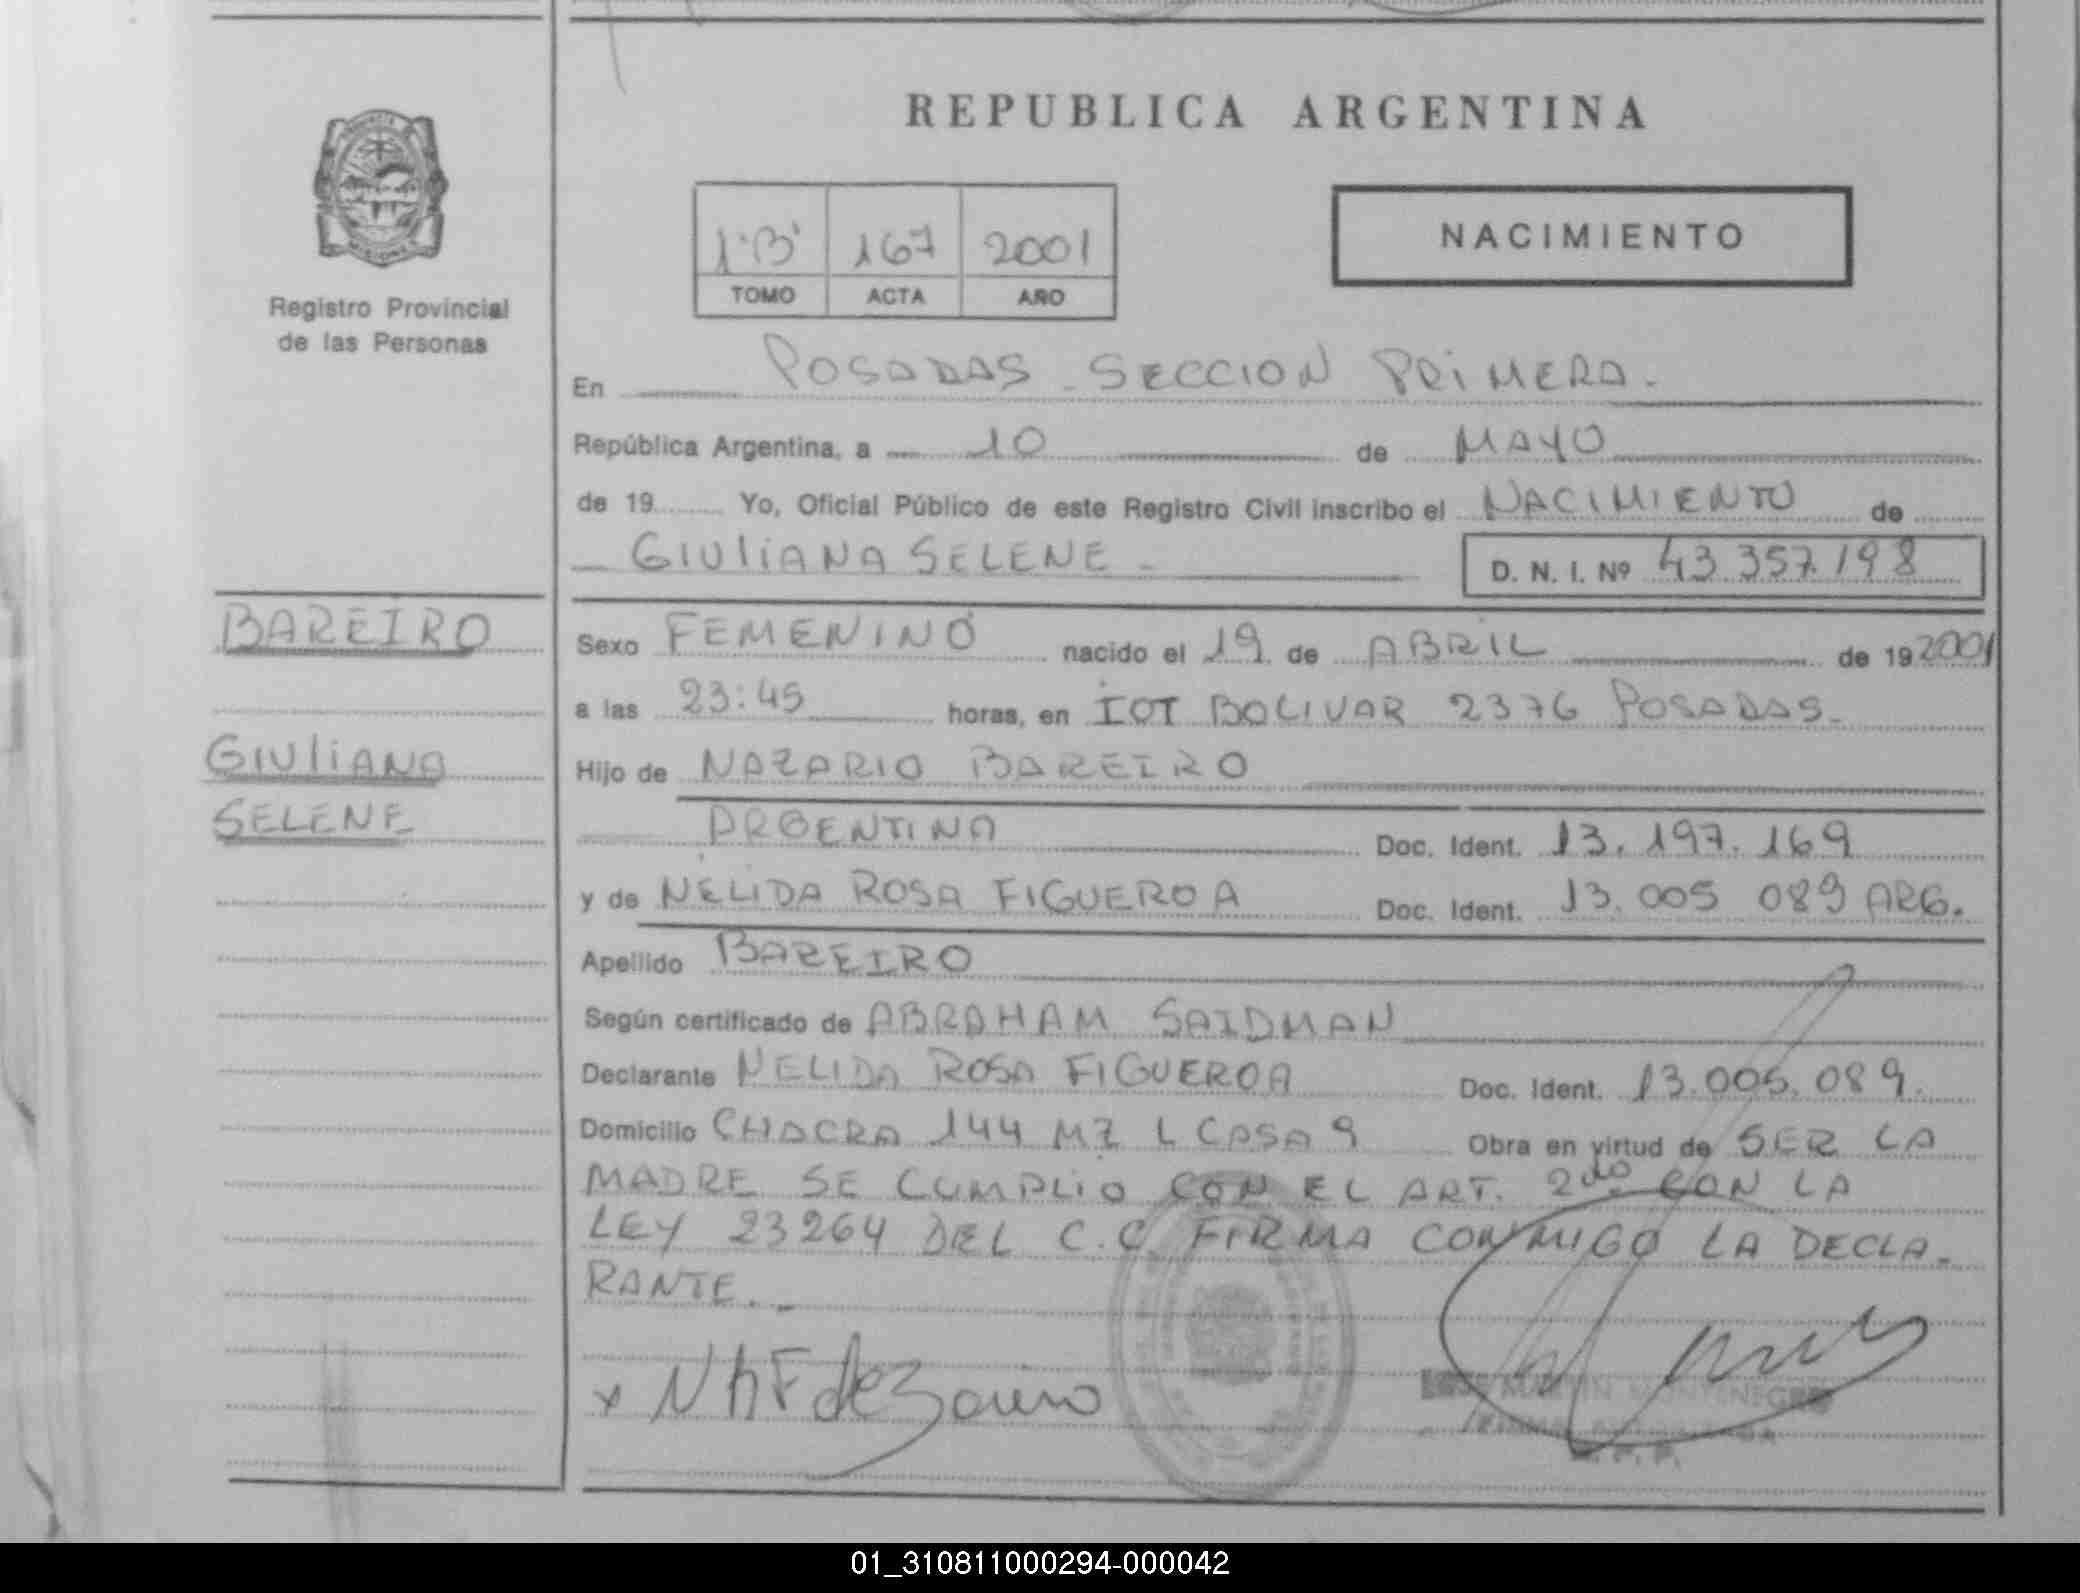 REPUBLICA ARGENTINA
1·"B" 167 2001
TOMO ACTA AÑO
NACIMIENTO
Registro Provincial
de las Personas
En POSADAS - SECCION PRIMERA.
República Argentina, a 10 de MAYO
de 19 Yo, Oficial Público de este Registro Civil inscribo el NACIMIENTO de
GIULIANA SELENE - D. N. I. Nº 43 357.198
BAREIRO
GIULIANA
SELENE
Sexo FEMENINO nacido el 19 de ABRIL de 19 2001
a las 23:45 horas, en IOT BOLIVAR 2376 POSADAS-
Hijo de NAZARIO BAREIRO
ARGENTINA Doc. Ident. 13.197.169
y de NELIDA ROSA FIGUEROA Doc. Ident. 13.005 089 ARG.
Apellido BAREIRO
Según certificado de ABRAHAM SAIDMAN
Declarante NELIDA ROSA FIGUEROA Doc. Ident. 13.005.089.
Domicilio CHACRA 144 MZ L CASA 9 Obra en virtud de SER LA
MADRE SE CUMPLIO CON EL ART. 2do CON LA
LEY 23264 DEL C.C. FIRMA CONMIGO LA DECLA-
RANTE.-
MARTIN MONTENEGRO
01_310811000294-000042